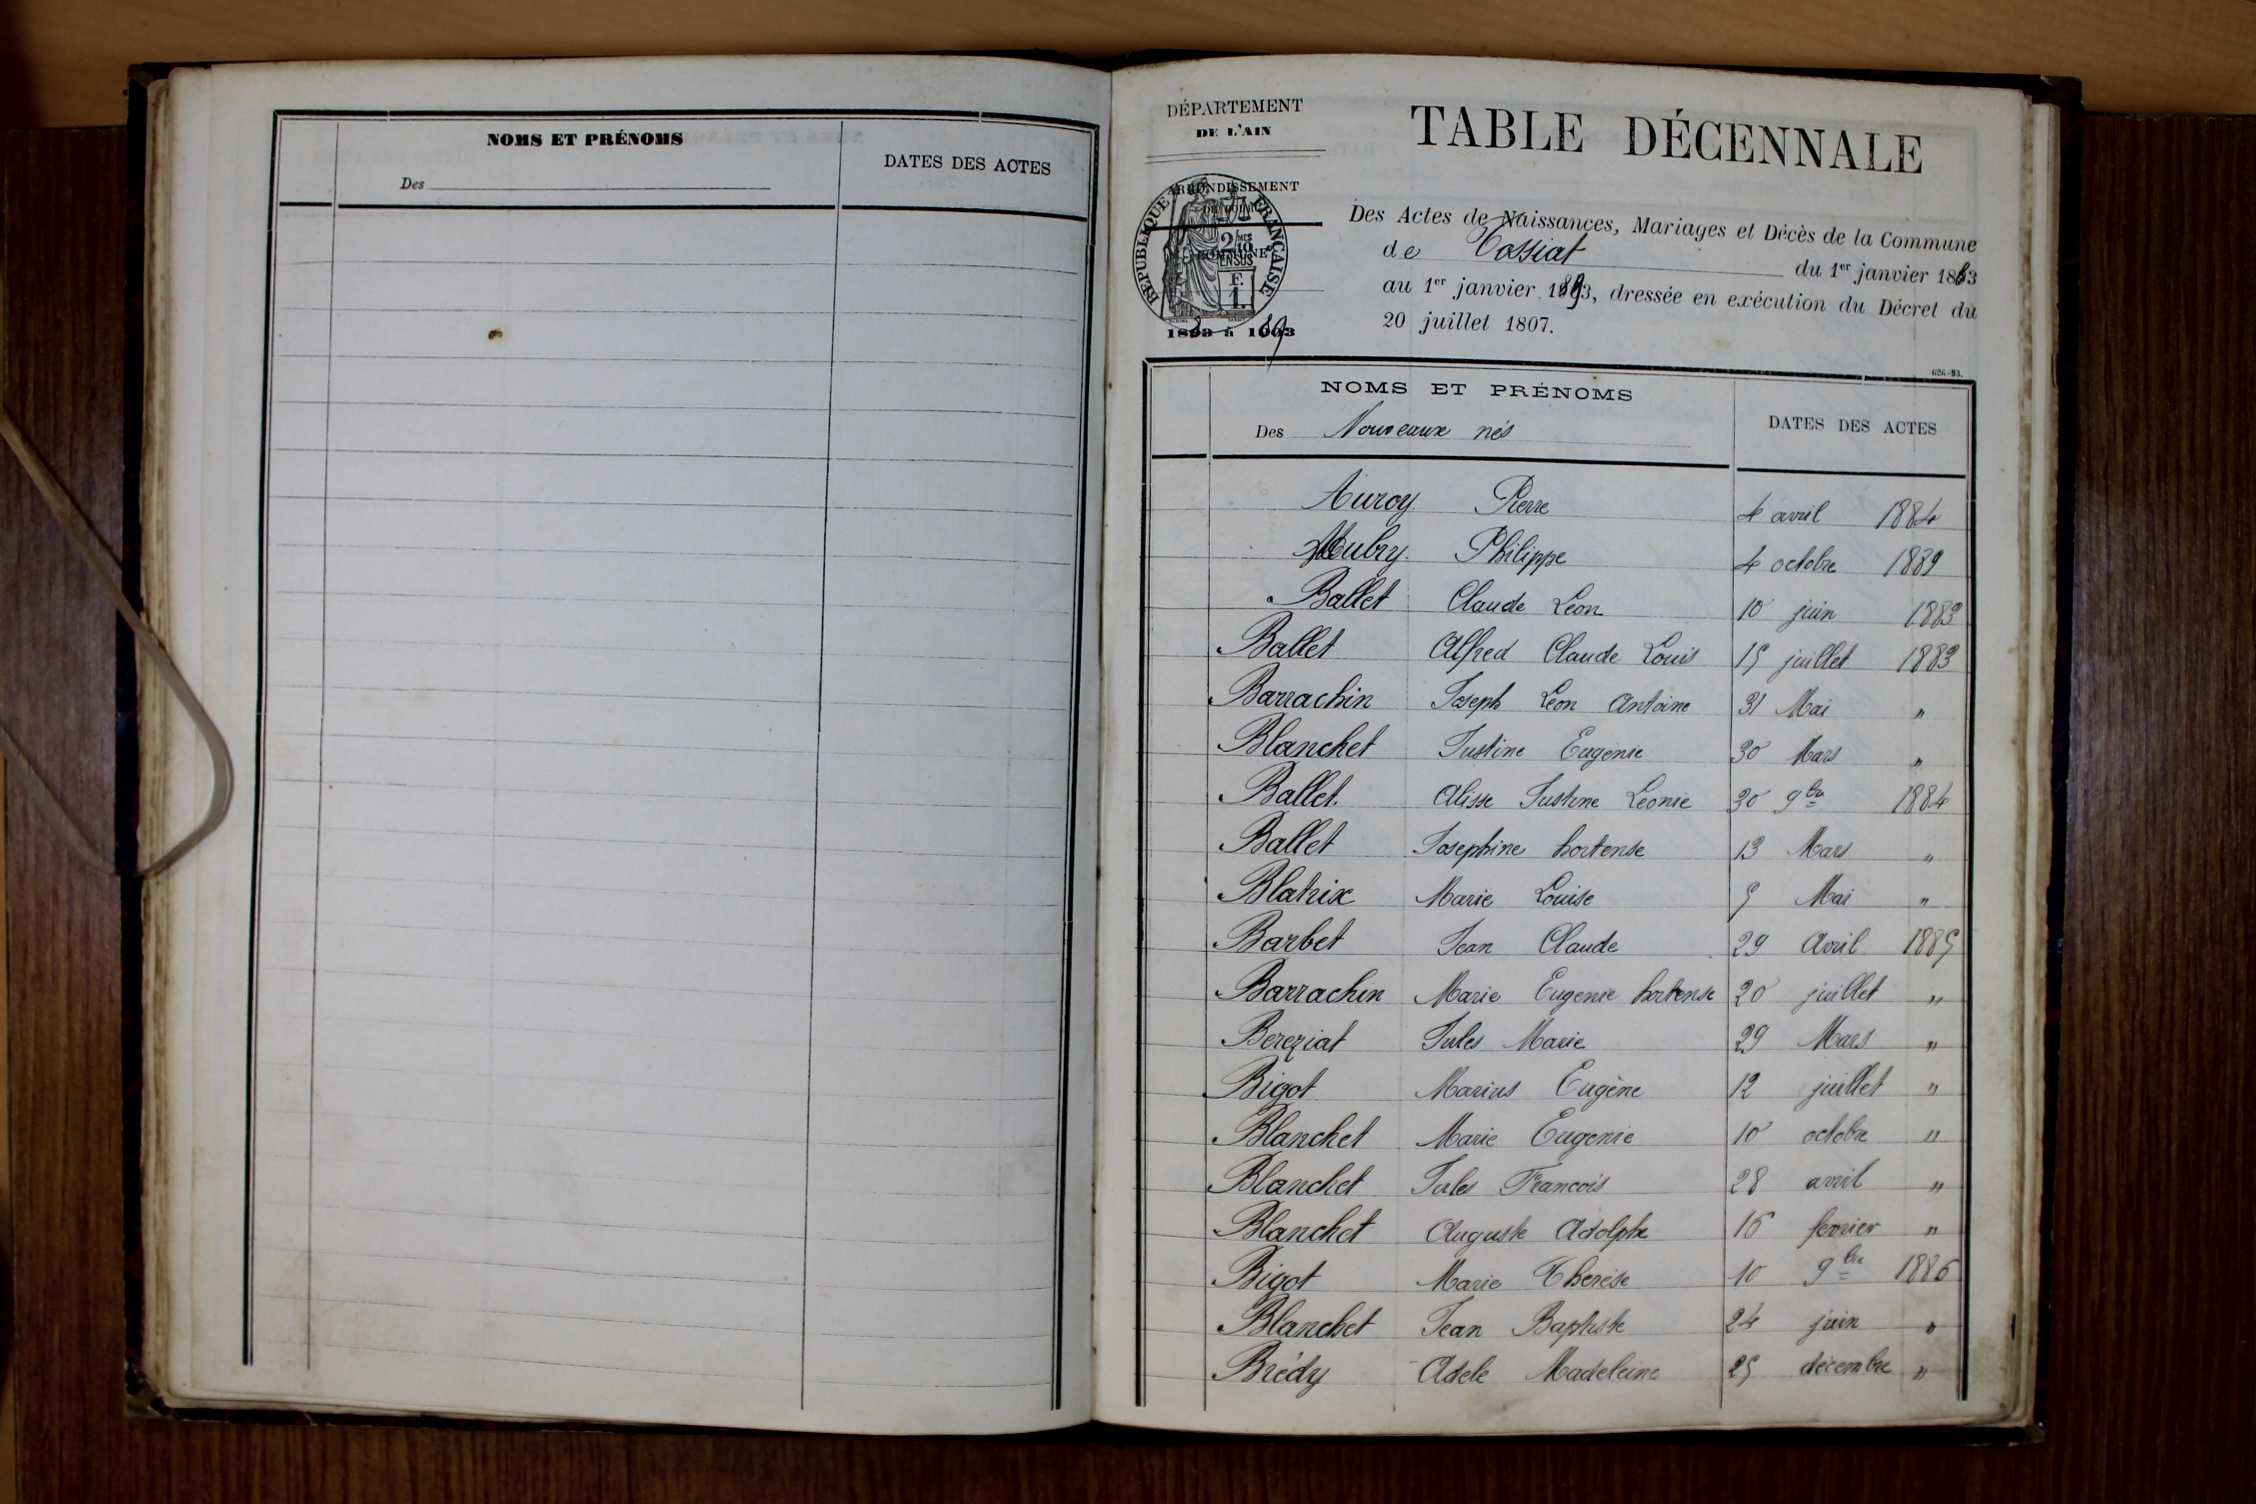 NOMS ET PRÉNOMS
Des
DATES DES ACTES
DÉPARTEMENT
DE L'AIN
ARRONDISSEMENT
COMMUNE
RÉPUBLIQUE FRANÇAISE
2/10 MES
EN SUS
F.
1.
TABLE DÉCENNALE
Des Actes de Naissances, Mariages et Décès de la Commune
de Tossiat du 1er janvier 1883
au 1er janvier 1893, dressée en exécution du Décret du
20 juillet 1807.
626-93.
NOMS ET PRÉNOMS
Des Nouveaux nés
DATES DES ACTES
Auroy Pierre 4 avril 1884
Aubry Philippe 4 octobre 1889
Ballet Claude Léon 10 juin 1883
Ballet Alfred Claude Louis 15 juillet 1883
Barrachin Joseph Léon Antoine 31 Mai "
Blanchet Justine Eugénie 30 Mars "
Ballet Alisse Justine Léonie 30 9bre 1884
Ballet Josephine hortense 13 Mars "
Blatrix Marie Louise 5 Mai "
Barbet Jean Claude 29 Avril 1885
Barrachin Marie Eugenie hortense 20 juillet "
Bereziat Jules Marie 29 Mars "
Bigot Marius Eugène 12 juillet "
Blanchet Marie Eugenie 10 octobre "
Blanchet Jules François 28 avril "
Blanchet Auguste Adolphe 16 fevrier "
Bigot Marie Therése 10 9bre 1886
Blanchet Jean Baptiste 24 juin "
Brédy Adele Madeleine 25 décembre "